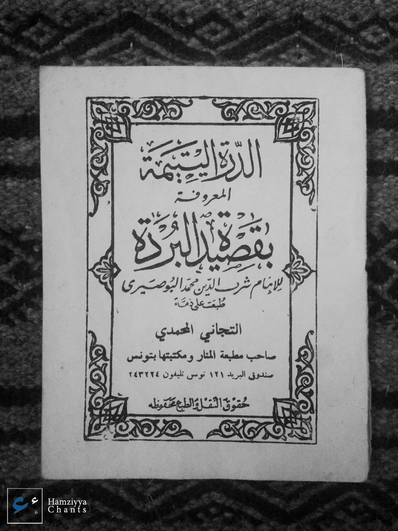 الدرة اليتيمة
المعروفة
بقصيدة البردة
للإمام شرف الدين محمد البوصيري
طبعت على ذمة
التجاني المحمدي
صاحب مطبعة المنار ومكتبتها بتونس
صندوق البريد ١٢١ تونس تليفون ٢٤٣٢٢٤
حقوق النقل والطبع محفوظة
Hamziyya
Chants